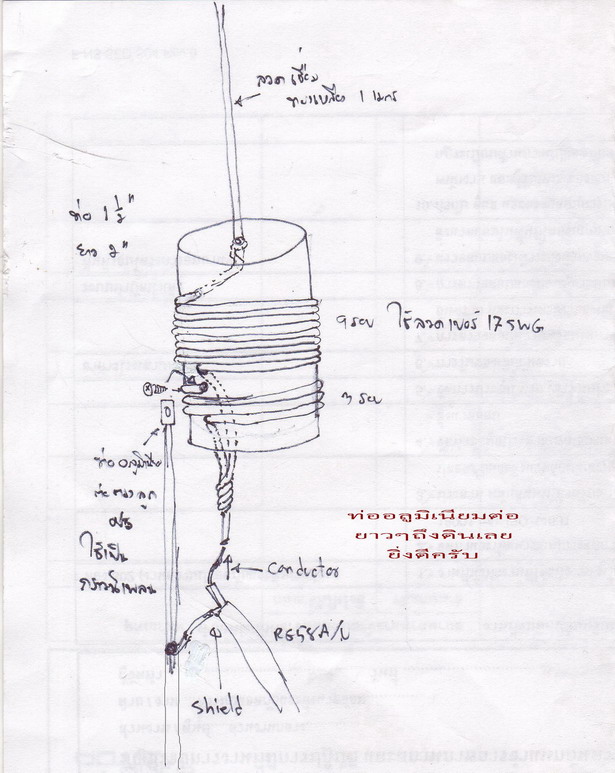 ลวดเชื่อม
ทองเหลือง 1 เมตร
ท่อ 1 1/2"
ยาว 2"
9 รอบ ใช้ลวดเบอร์ 17 SWG
3 รอบ
ท่ออลูมิเนียม
ใช้เป็น
กราวน์เพลน
ท่ออลูมิเนียมต่อ
ยาวๆถึงดินเลย
ยิ่งดีครับ
Conductor
RG58A/U
Shield